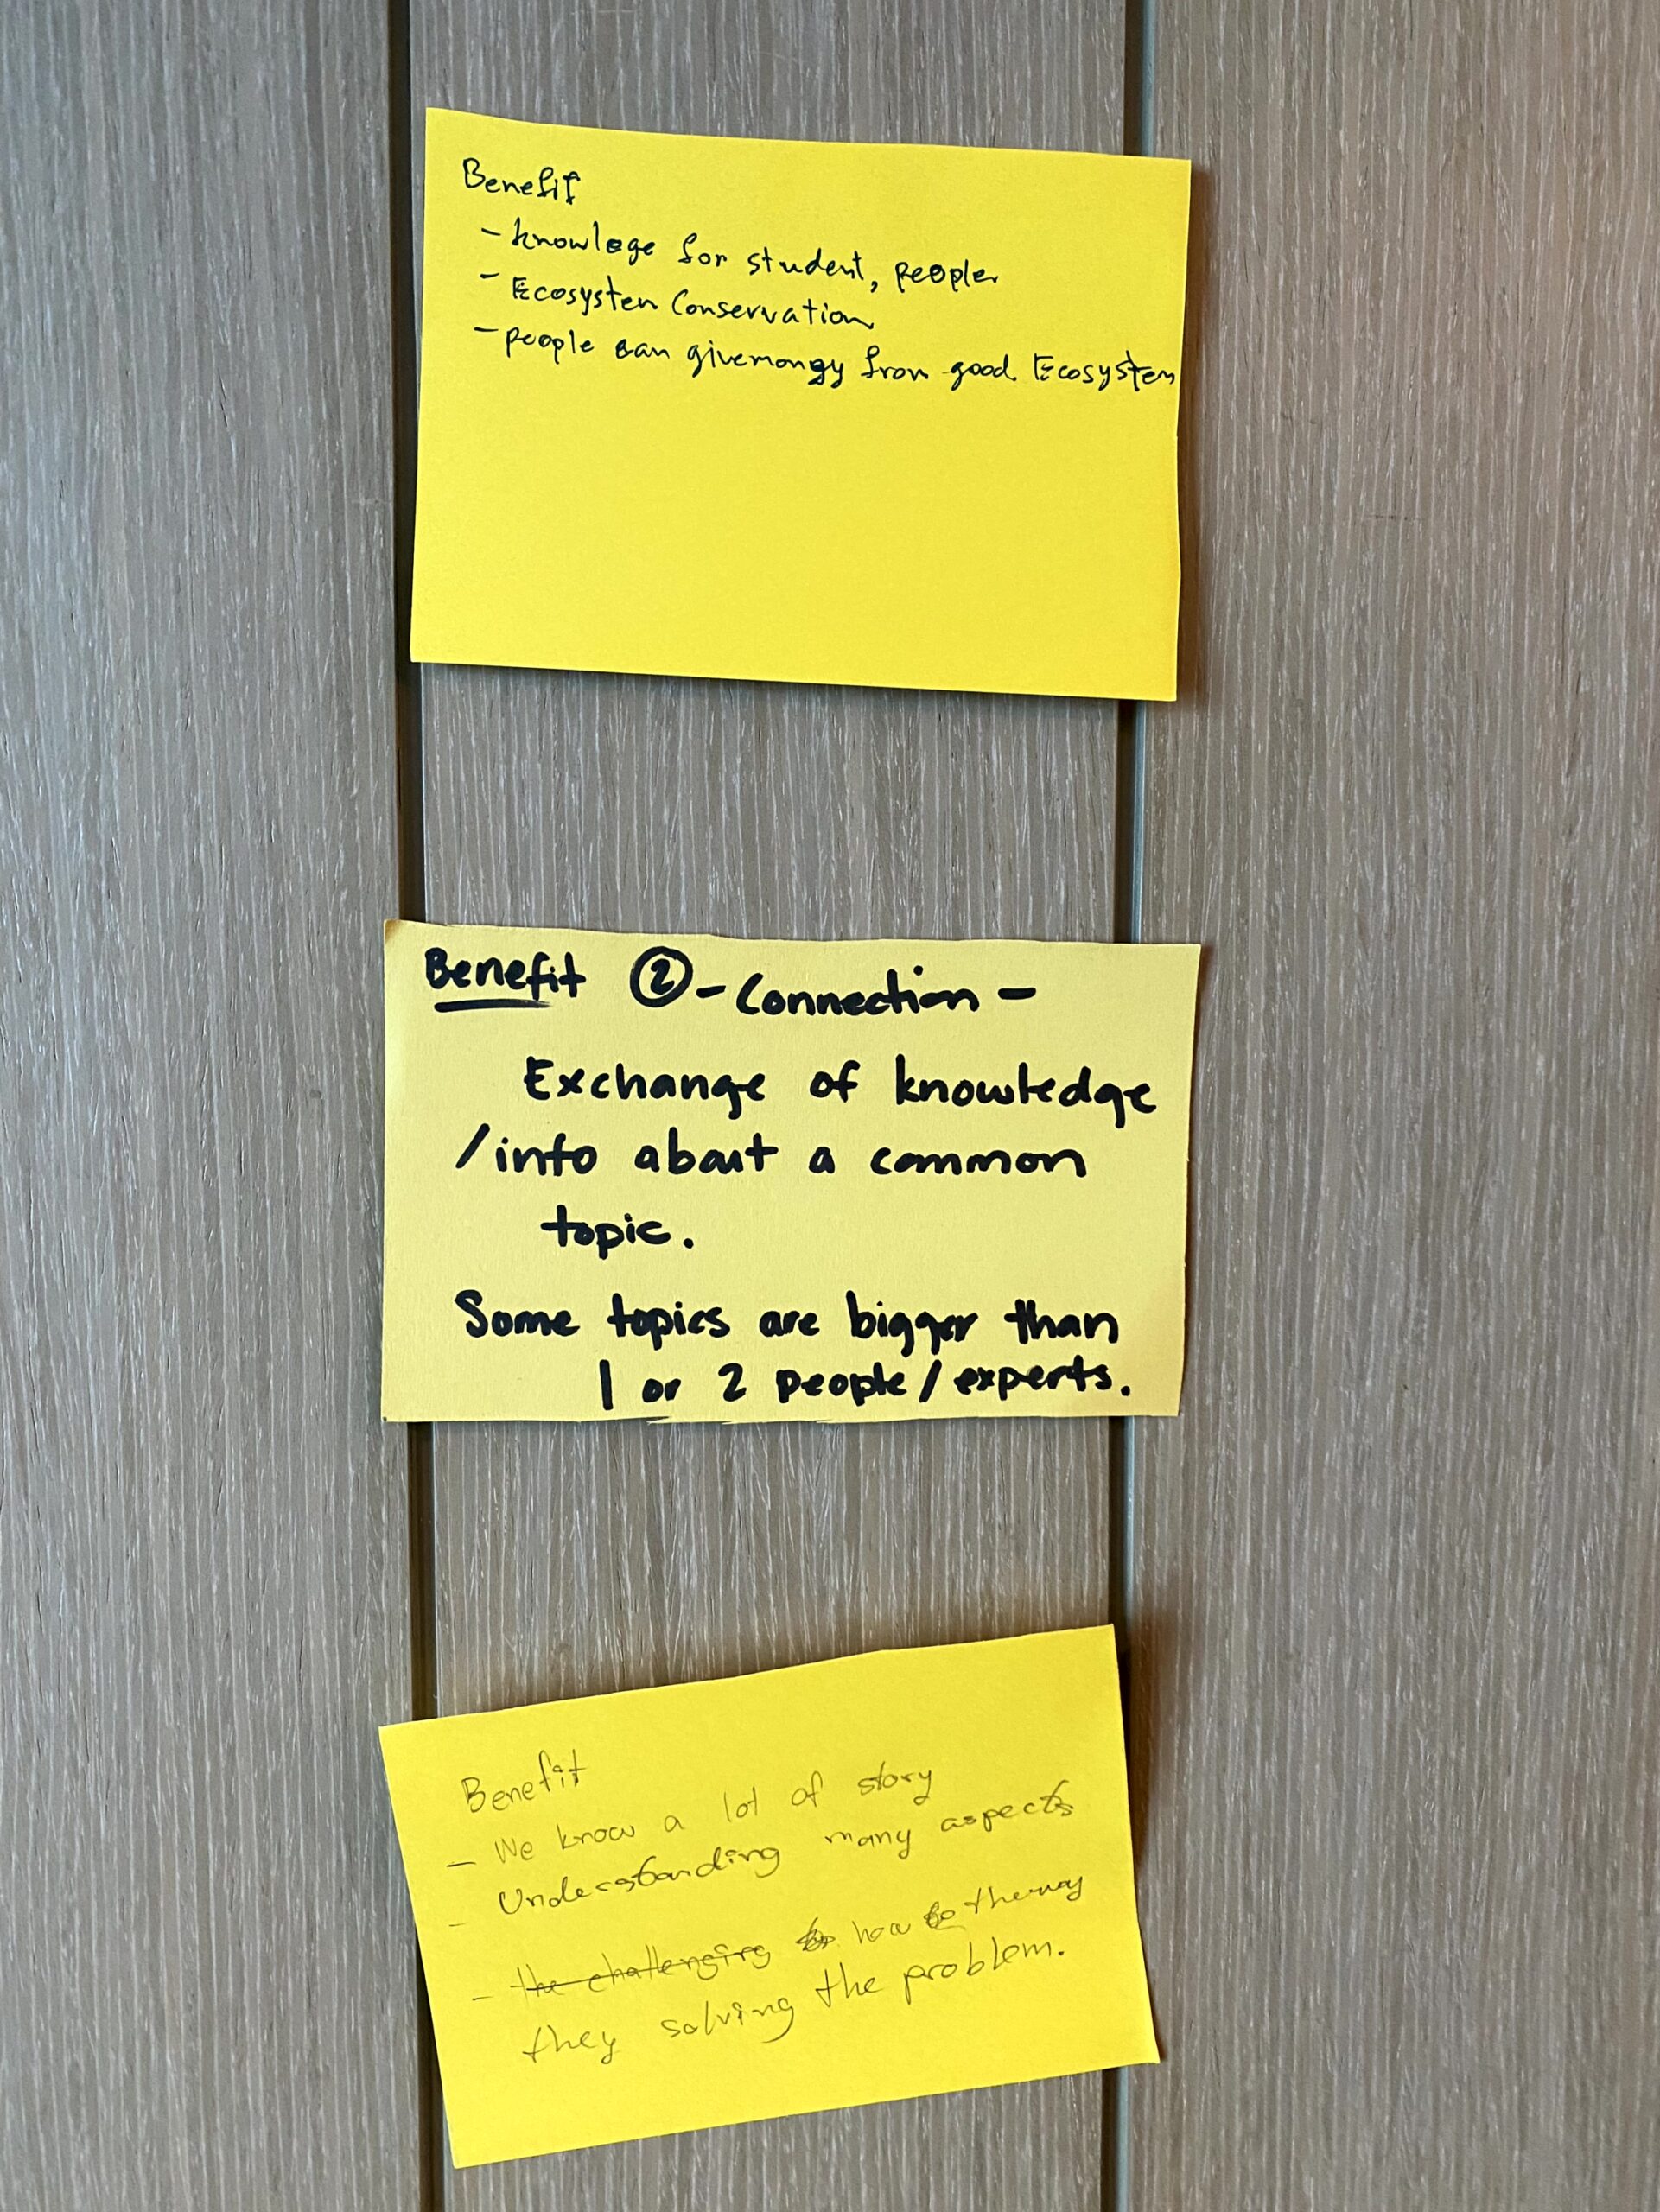 Benefit
- knowloge for student, people
- Ecosysten Conservation
- people can givemongy from good Ecosystem
Benefit ② - Connection -
Exchange of knowledge
/info about a common
topic.
Some topics are bigger than
1 or 2 people / experts.
Benefit
- We know a lot of story
- Understanding many aspects
- the challenging how the way
they solving the problem.